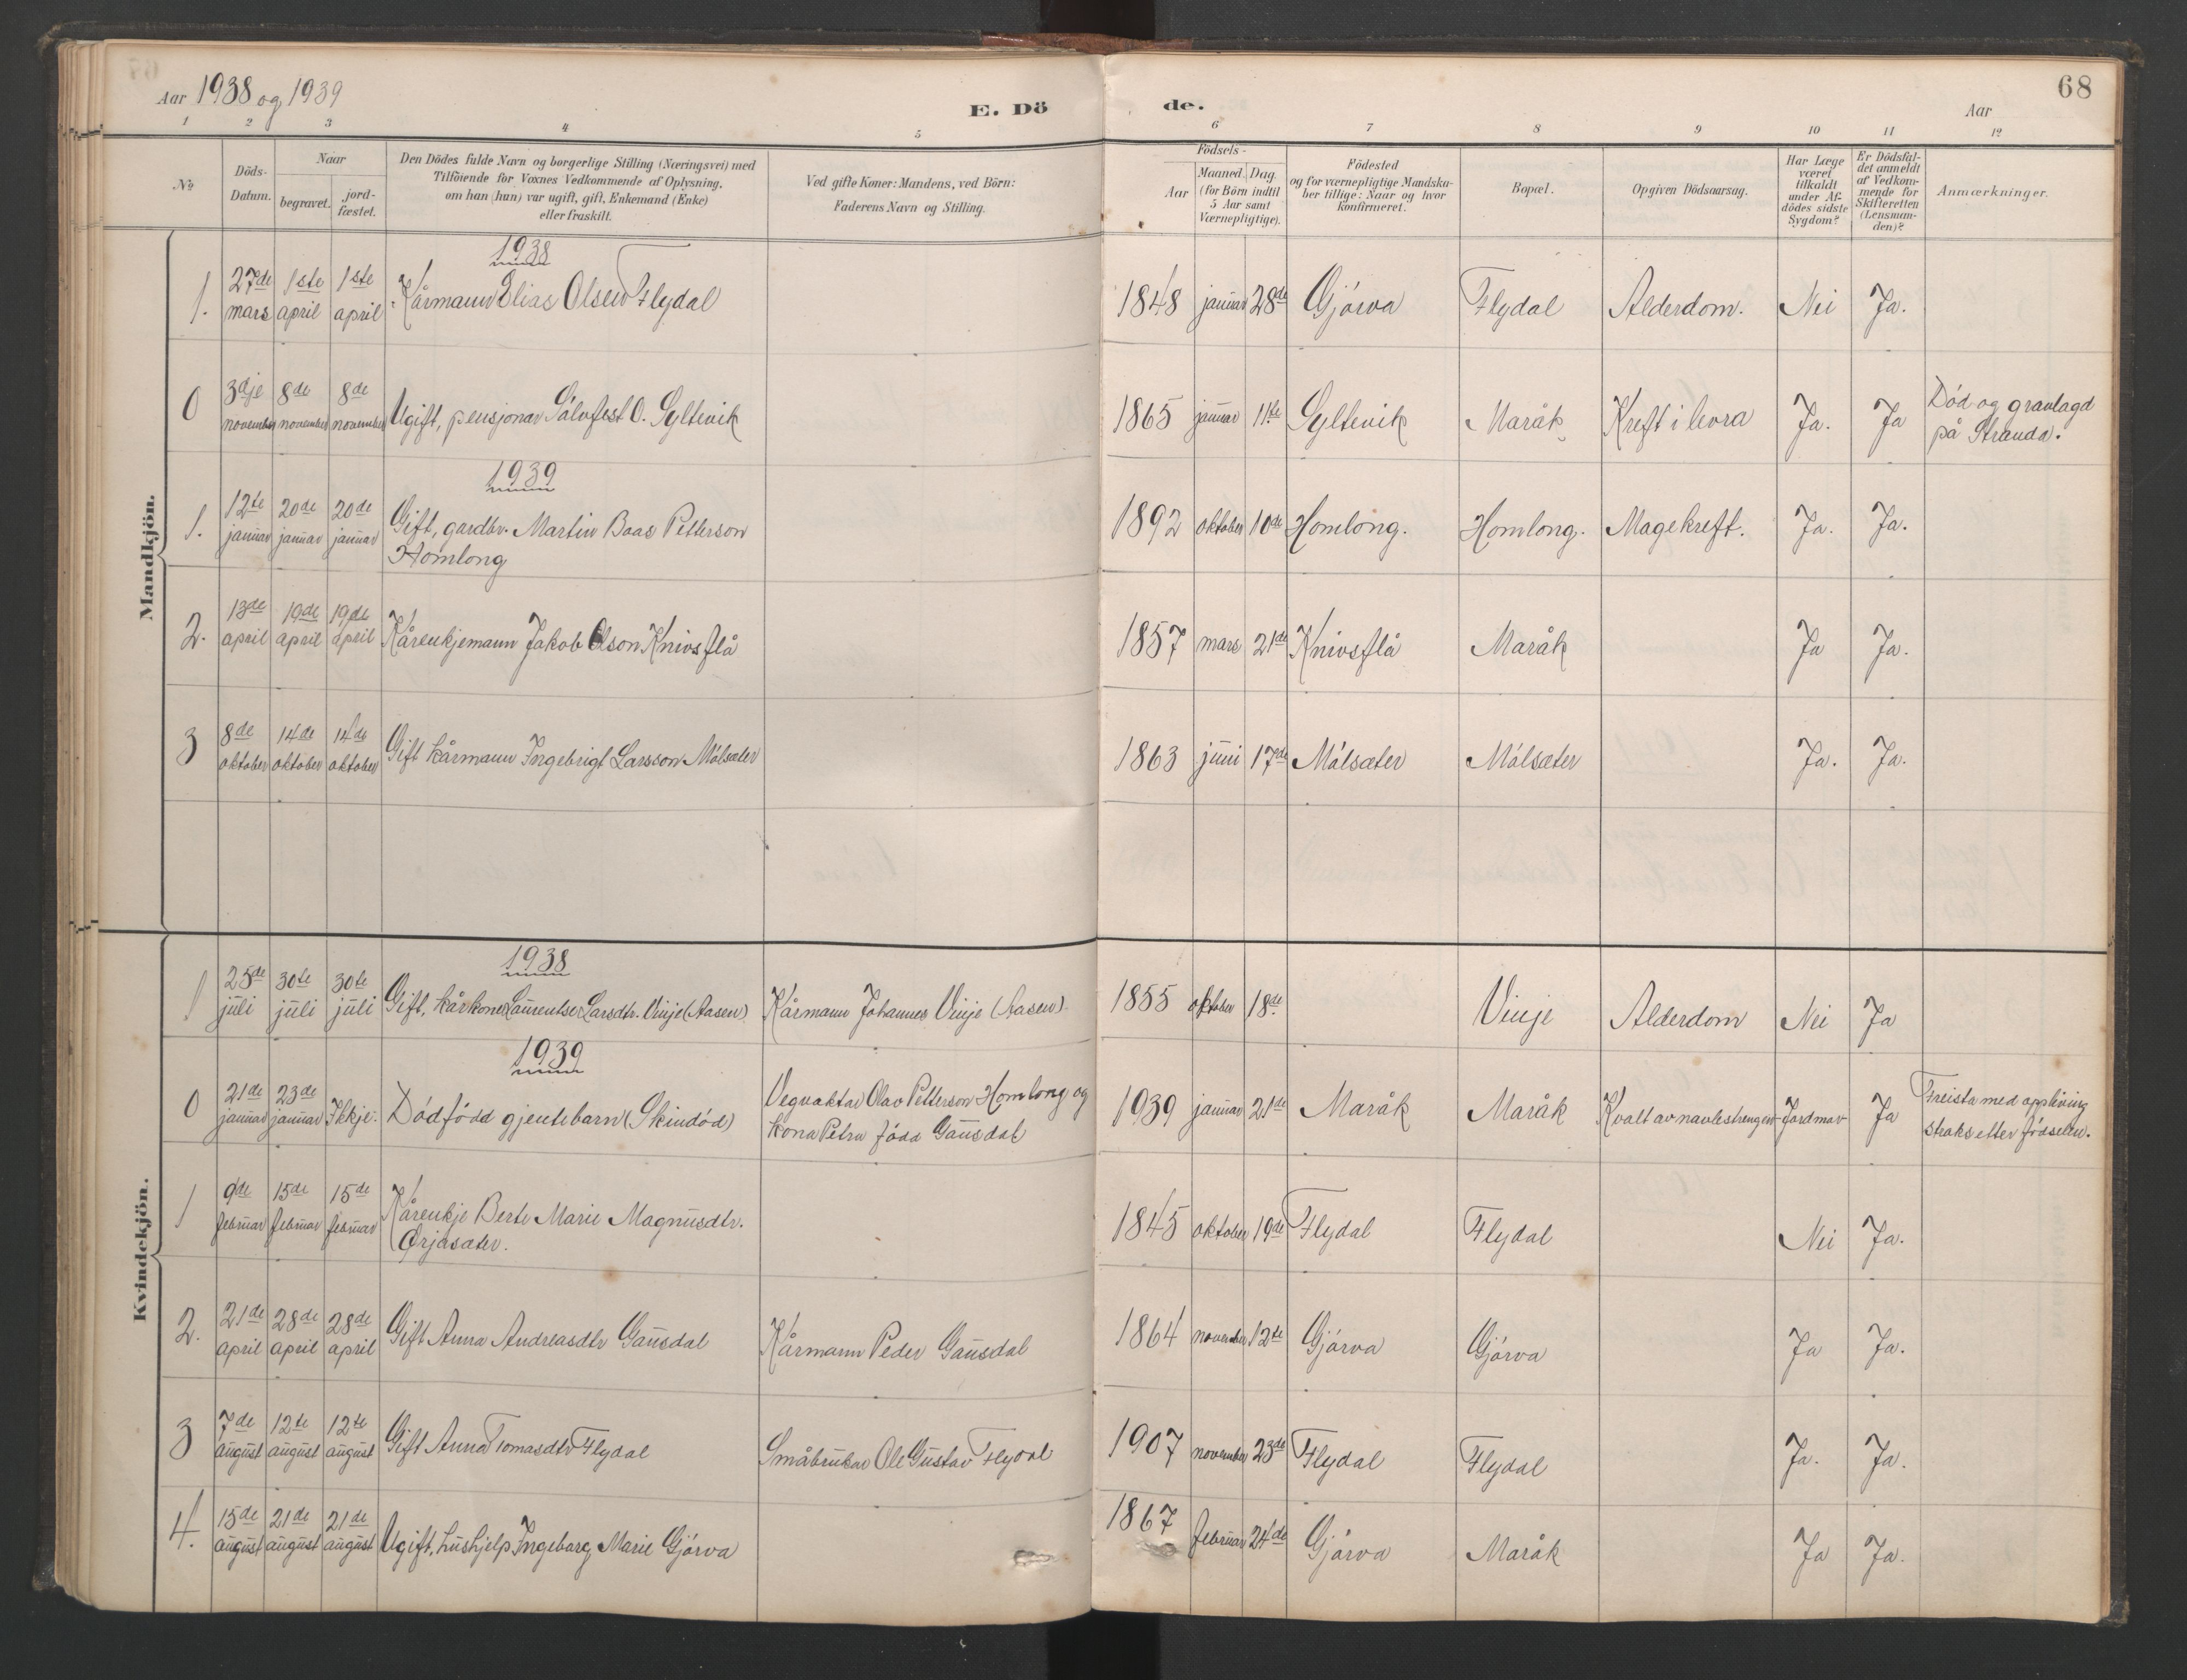 Aar 1938 og 1939
E. Dö de.
Aar
68
1 2 3 4 5 6 7 8 9 10 11 12
№
Döds-
Datum.
Naar
begravet.
jord-
fæstet.
Den Dödes fulde Navn og borgerlige Stilling (Næringsvei) med
Tilföiende for Voxnes Vedkommende af Oplysning,
om han (hun) var ugift, gift, Enkemand (Enke)
eller fraskilt.
Ved gifte Koner: Mandens, ved Börn:
Faderens Navn og Stilling.
Födsels-
Aar
Maaned. Dag.
(for Börn indtil
5 Aar samt
Værnepligtige).
Födested
og for værnepligtige Mandska-
ber tillige: Naar og hvor
konfirmeret.
Bopæl.
Opgiven Dödsaarsag.
Har Læge
været
tilkaldt
under Af-
dödes sidste
Sygdom?
Er Dödsfal-
det anmeldt
af Vedkom-
mende for
Skifteretten
(Lensman-
den)?
Anmærkninger.
Mandkjön.
1938
1. 27de mars 1ste april 1ste april Kårmann Elias Olsen Flydal 1848 januar 28de Gjörva Flydal Alderdom. Nei Ja.
0 3dje november 8de november 8de november Ugift, pensjonar Sålvfest O. Gyltevik 1865 januar 11te Gyltevik Maråk Kreft i levra Ja. Ja Död og gravlagd
på Stranda.
1939
1. 12te januar 20de januar 20de januar Gift, gardbr. Martin Baas Petterson
Homlong 1892 oktober 10de Homlong. Homlong. Magekreft. Ja. Ja.
2. 13de april 19de april 19de april Kårenkjemann Jakob Olson Knivsflå 1857 mars 21de Knivsflå Maråk Ja Ja.
3 8de oktober 14de oktober 14de oktober Gift kårmann Ingebrigt Larsson Målsæter 1863 juni 17de Målsæter Målsæter Ja. Ja.
Kvindekjön.
1938
1 25de juli 30te juli 30te juli Gift, kårkone Laurentse Larsdtr. Vinje (Aasen) Kårmann Johannes Vinje (Aasen) 1855 oktober 18de Vinje Alderdom Nei Ja
1939
0 21de januar 23de januar Ikkje. Dödfödd gjentebarn (Skindöd) Vegvaktar Olav Petterson Homlong og
kona Petra född Gausdal 1939 januar 21de Maråk Maråk Kvalt av navlestrengen Jordmor Ja Freista med oppliving
straks etter födselen.
1 9de februar 15de februar 15de februar Kårenkje Berte Marie Magnusdtr.
Ørjasæter. 1845 oktober 19de Flydal Flydal Nei Ja.
2. 21de april 28de april 28de april Gift Anna Andreasdtr Gausdal Kårmann Peder Gausdal 1864 november 12te Gjörva Gjörva Ja Ja.
3 7de august 12te august 12te august Gift Anna Tomasdtr Flydal Småbrukar Ole Gustav Flydal 1907 november 23de Flydal Flydal Ja. Ja.
4. 15de august 21de august 21de august Ugift, hushjelp Ingeborg Marie Gjörva 1867 februar 24de Gjörva Maråk Ja Ja.